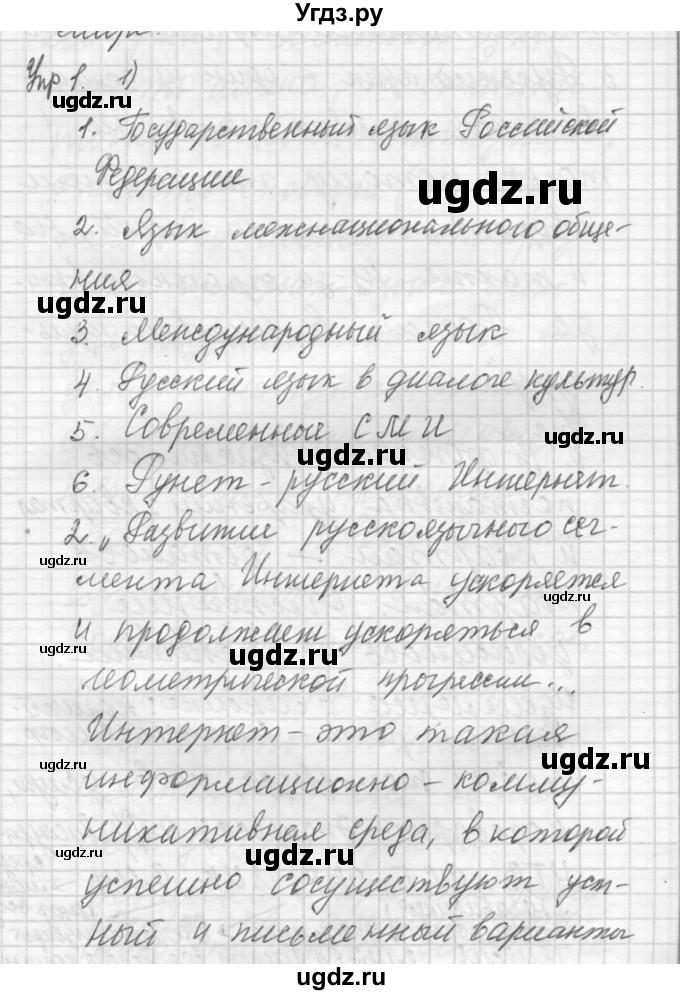 Угдз.ру
Упр 1. 1)
ugdz.ru
1. Государственный язык Российской
Федерации
ugdz.ru
2. Язык межнационального обще-
ния
ugdz.ru
3. Международный язык
4. Русский язык в диалоге культур.
5. Современные СМИ
ugdz.ru
ugdz.ru
6. Рунет - русский Интернет.
2. „Развитие русскоязычного сег-
ugdz.ru
мента Интернета ускоряется
ugdz.ru
и продолжает ускоряться в
ugdz.ru
ugdz.ru
геометрической прогрессии...
Интернет - это такая
ugdz.ru
ugdz.ru
информационно - комму-
никативная среда, в которой
ugdz.ru
ugdz.ru
успешно сосуществуют уст-
ный и письменный варианты
ugdz.ru
ugdz.ru